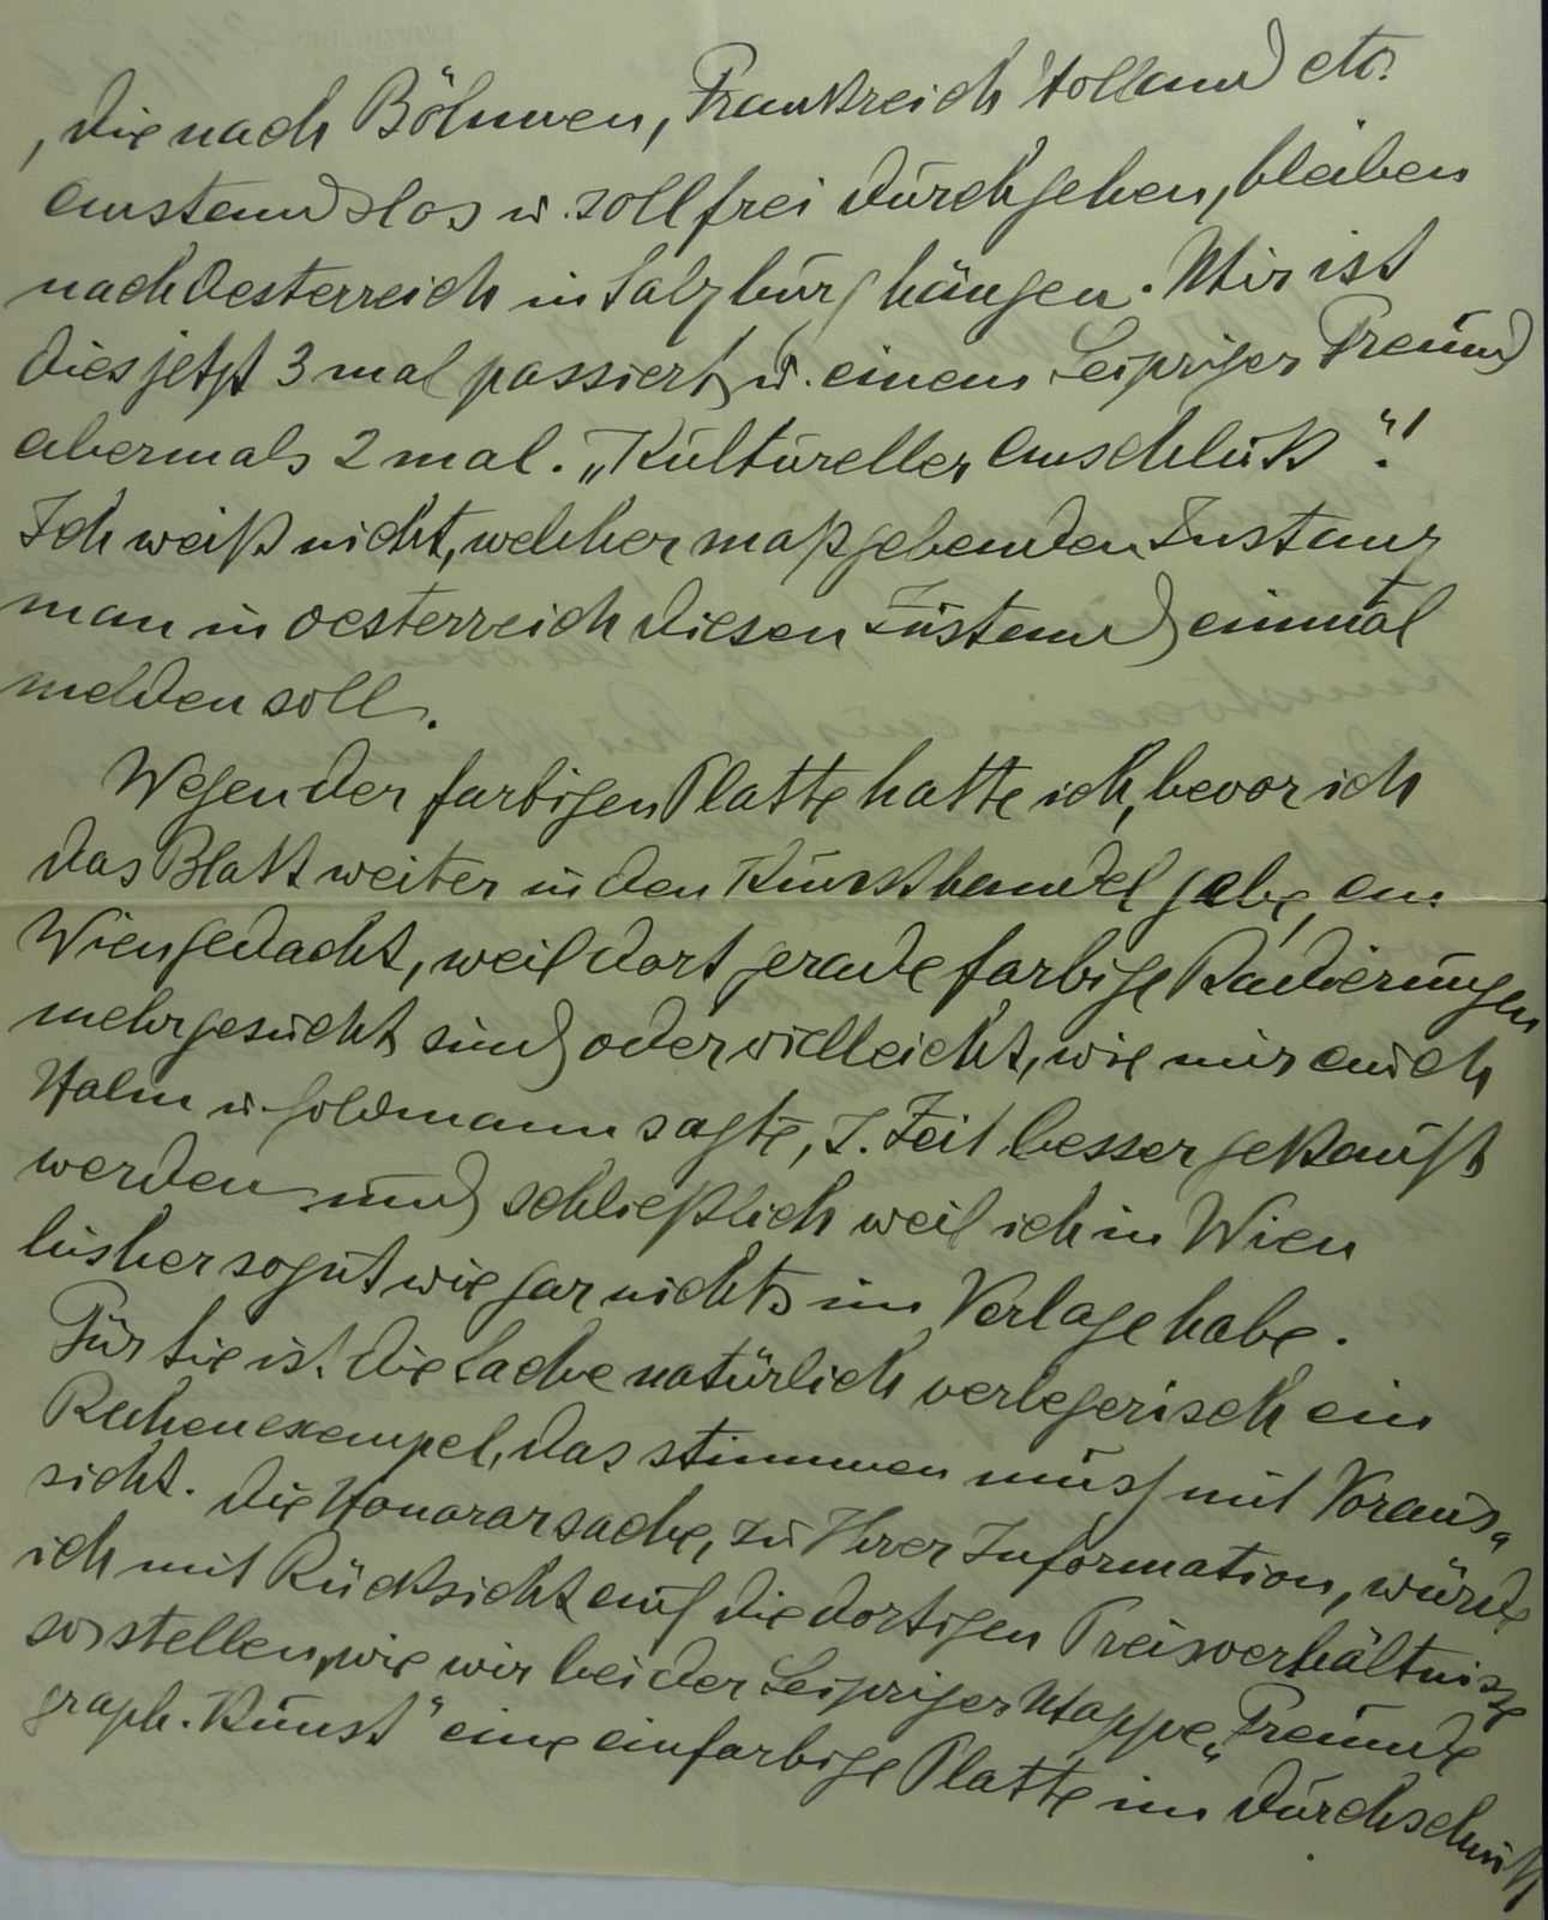 , die nach Böhmen, Frankreich Holland etc.
anstandslos u. zollfrei durchgehen, bleiben
nach Oesterreich in Salzburg hängen. Mir ist
dies jetzt 3 mal passiert u. einem Leipziger Freund
abermals 2 mal. „Kultureller Anschluß"!
Ich weiß nicht, welcher maßgebenden Instanz
man in Oesterreich diesen Zustand einmal
melden soll.
Wegen der farbigen Platte hatte ich, bevor ich
das Blatt weiter in den Kunsthandel gebe, an
Wien gedacht, weil dort gerade farbige Radierungen
mehr gesucht sind oder vielleicht, wie mir auch
Halm u. Goldmann sagte, z. Zeit besser gekauft
werden und schließlich weil ich in Wien
bisher so gut wie gar nichts im Verlage habe.
Für Sie ist die Sache natürlich verlegerisch ein
Rechenexempel, das stimmen muss mit Voraus-
sicht. Die Honorarsache, zu Ihrer Information, würde
ich mit Rücksicht auf die dortigen Preisverhältnisse
so stellen, wie wir bei der Leipziger Mappe „Freunde
graph. Kunst" eine einfarbige Platte im Durchschnitt